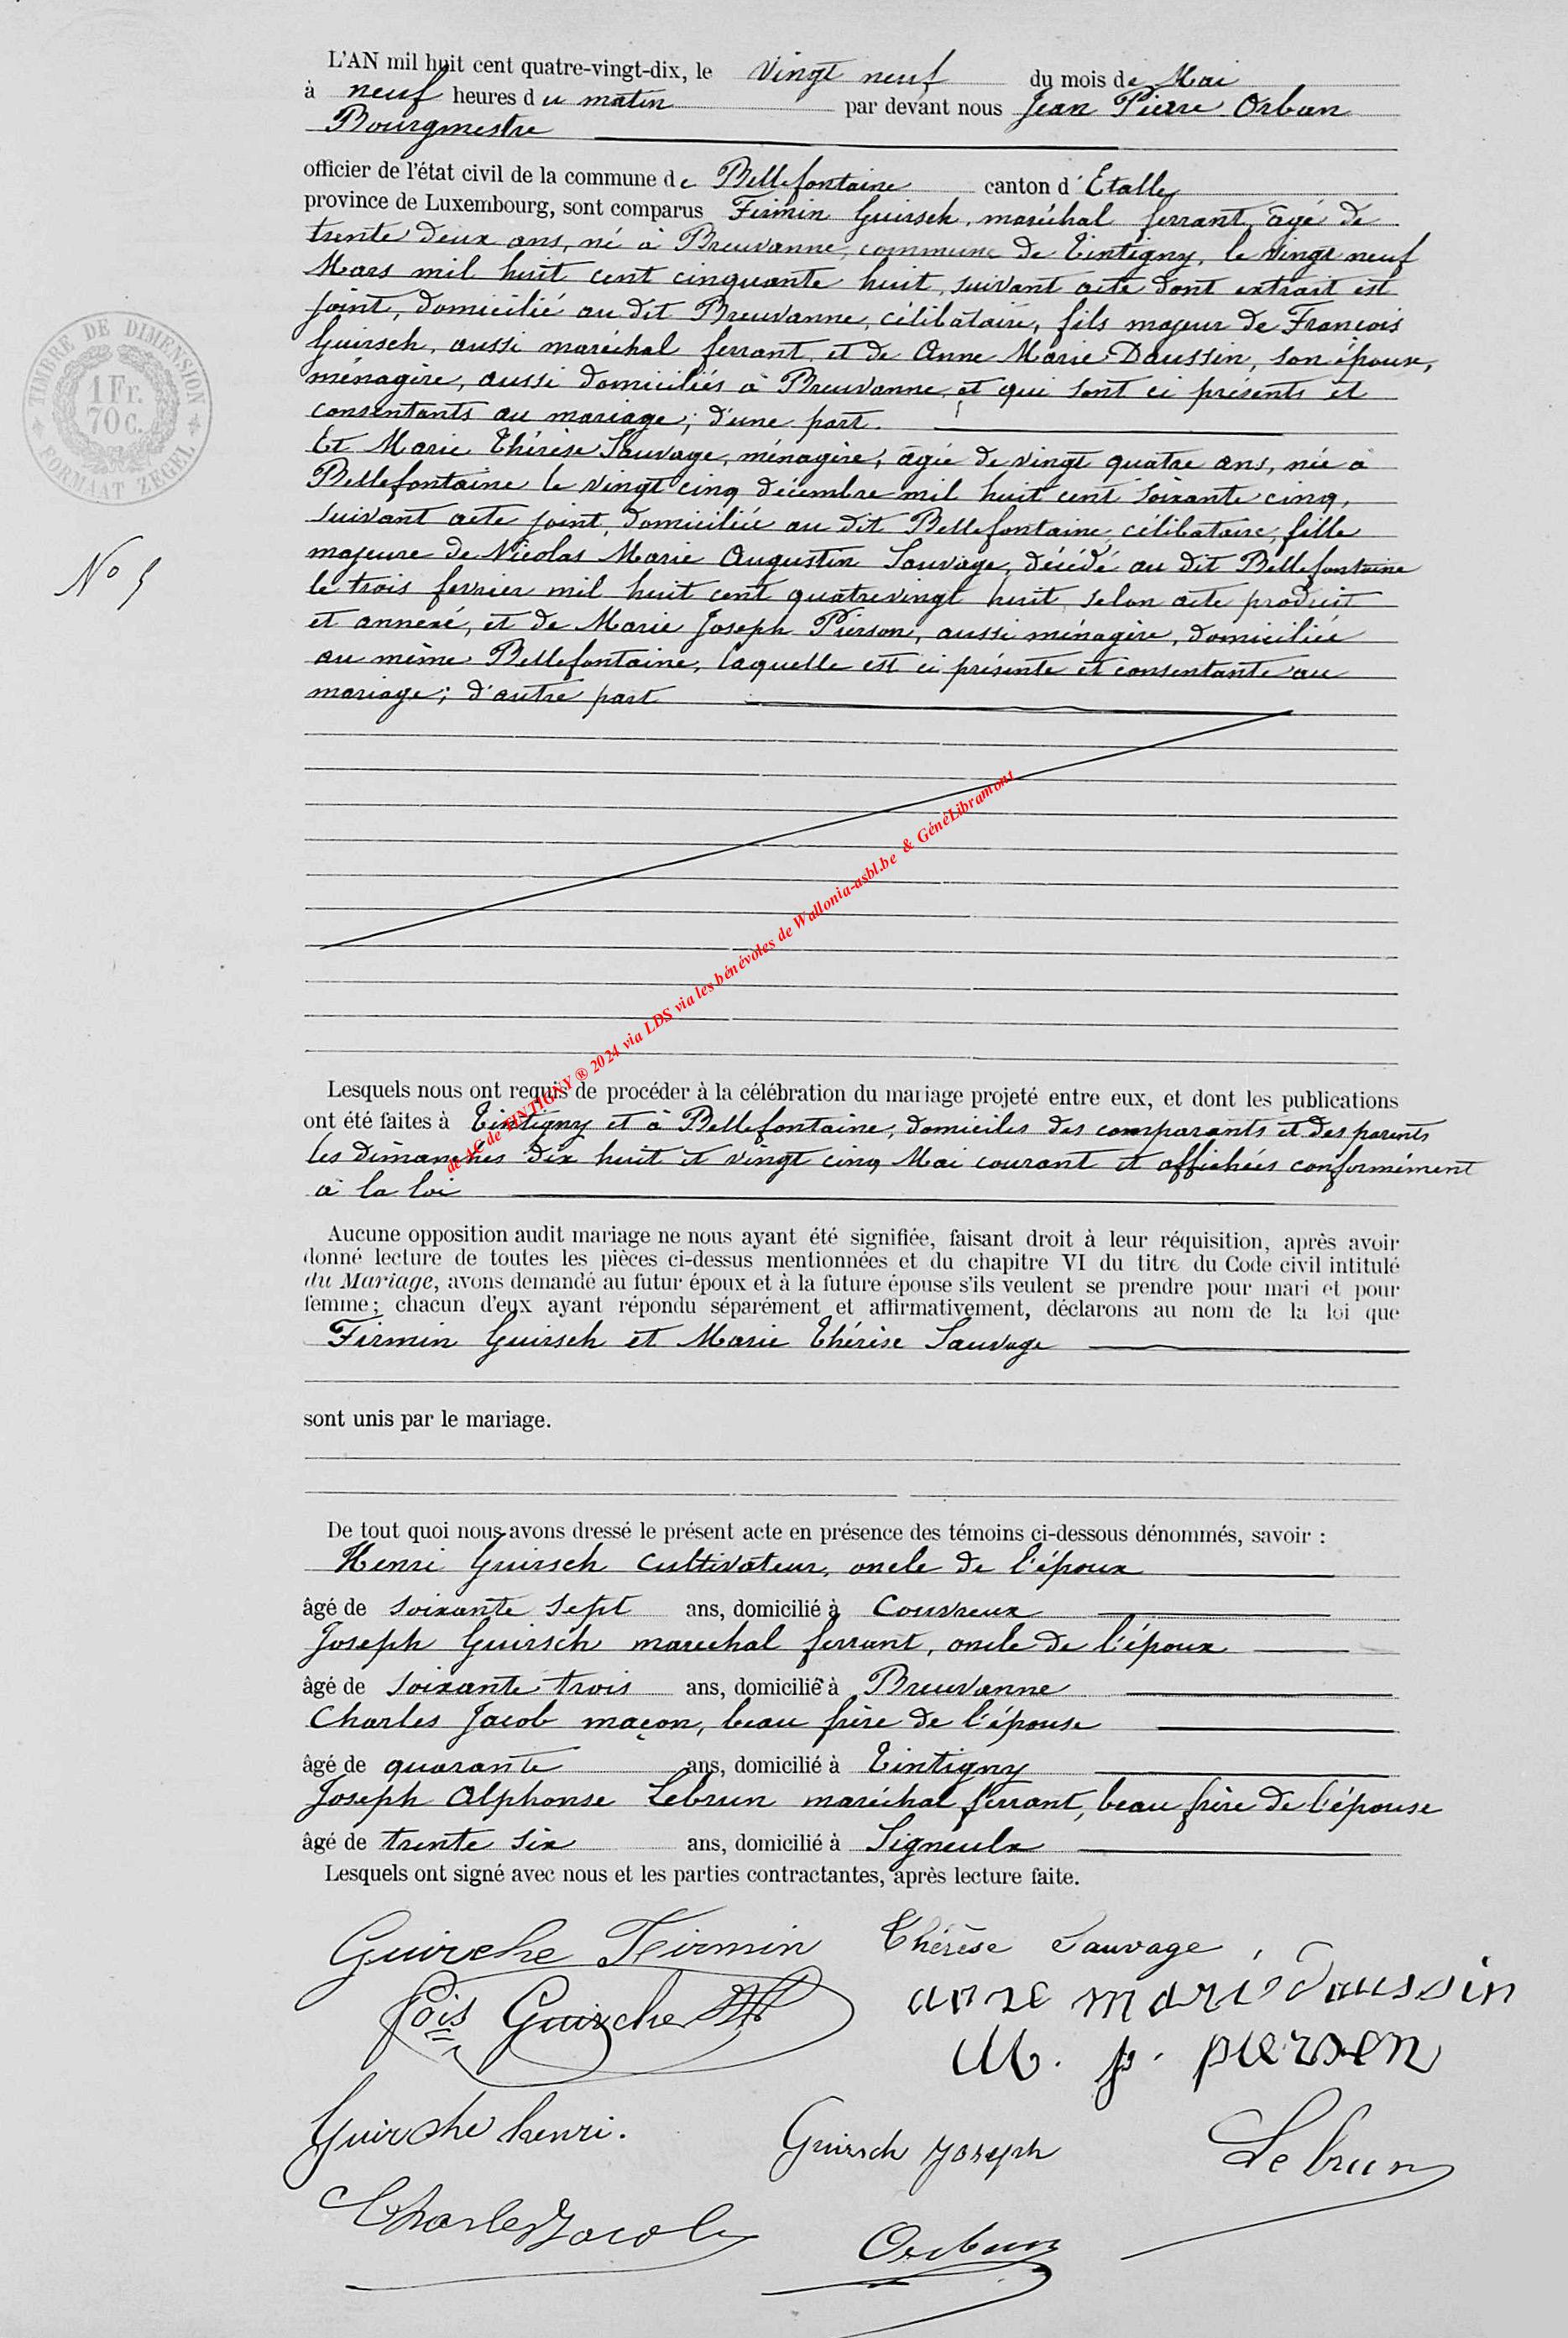 L'AN mil huit cent quatre-vingt-dix, le vingt neuf du mois de Mai
à neuf heures du matin par devant nous Jean Pierre Orban
Bourgmestre
officier de l'état civil de la commune de Bellefontaine canton d'Etalle
province de Luxembourg, sont comparus Firmin Guirsch, maréchal ferrant, âgé de
trente deux ans, né à Breuvanne, commune de Tintigny, le vingt neuf
Mars mil huit cent cinquante huit, suivant acte dont extrait est
joint, domicilié au dit Breuvanne, célibataire, fils majeur de François
Guirsch, aussi maréchal ferrant, et de Anne Marie Daussin, son épouse,
ménagère, aussi domiciliés à Breuvanne, et qui sont ci présents et
consentants au mariage; d'une part.
Et Marie Thérèse Sauvage, ménagère, âgée de vingt quatre ans, née à
Bellefontaine le vingt cinq décembre mil huit cent soixante cinq,
suivant acte joint, domiciliée au dit Bellefontaine, célibataire, fille
majeure de Nicolas Marie Augustin Sauvage, décédé au dit Bellefontaine
N° 5
le trois fevrier mil huit cent quatrevingt huit, selon acte produit
et annexé, et de Marie Joseph Pierson, aussi ménagère, domiciliée
au même Bellefontaine, laquelle est ci présente et consentante au
mariage; d'autre part
TIMBRE DE DIMENSION
1 Fr.
70 c.
FORMAAT ZEGEL
de AC de TINTIGNY ® 2024 via LDS via les bénévoles de Wallonia-asbl.be & GénéLibramont
Lesquels nous ont requis de procéder à la célébration du mariage projeté entre eux, et dont les publications
ont été faites à Tintigny et à Bellefontaine, domiciles des comparants et des parents
les dimanches dix huit et vingt cinq Mai courant et affichées conformément
à la loi
Aucune opposition audit mariage ne nous ayant été signifiée, faisant droit à leur réquisition, après avoir
donné lecture de toutes les pièces ci-dessus mentionnées et du chapitre VI du titre du Code civil intitulé
du Mariage, avons demandé au futur époux et à la future épouse s'ils veulent se prendre pour mari et pour
femme; chacun d'eux ayant répondu séparément et affirmativement, déclarons au nom de la loi que
Firmin Guirsch et Marie Thérèse Sauvage
sont unis par le mariage.
De tout quoi nous avons dressé le présent acte en présence des témoins ci-dessous dénommés, savoir :
Henri Guirsch cultivateur, oncle de l'époux
âgé de soixante sept ans, domicilié à Couvreux
Joseph Guirsch marechal ferrant, oncle de l'époux
âgé de soixante trois ans, domicilié à Breuvanne
Charles Jacob maçon, beau frère de l'épouse
âgé de quarante ans, domicilié à Tintigny
Joseph Alphonse Lebrun maréchal ferrant, beau frère de l'épouse
âgé de trente six ans, domicilié à Signeulx
Lesquels ont signé avec nous et les parties contractantes, après lecture faite.
Guirche Firmin Thérèse Sauvage
fois Guirche anne marie daussin
M. j. piersen
Guirche henri. Guirsch Joseph Lebrun
Charles Jacob Orban